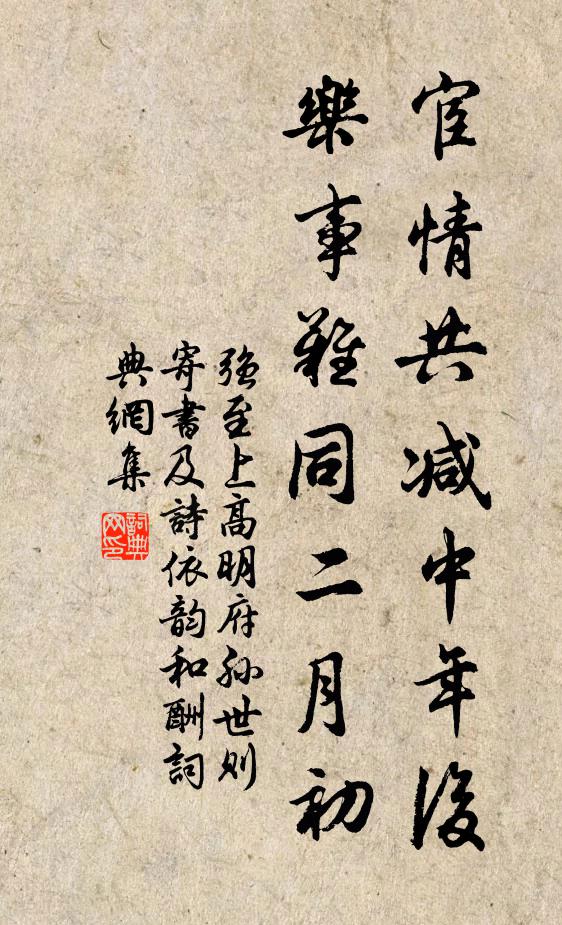 宦情共減中年後
樂事難同二月初
強至上高明府孫世則
寄書及詩依韵和酬詞
典網集
詞典網印